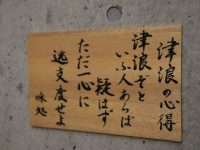 津浪の心得
津浪ぞと
いふ人あらば
疑はず
ただ一心に
逃支度せよ
味処